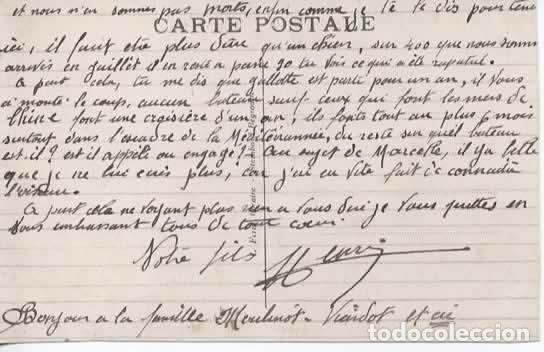 et nous n'en sommes pas morts, enfin comme je te le dis pour tenir
CARTE POSTALE
ici, il faut etre plus dur qu'un chien, sur 400 que nous sommes
arrivés en juillet il en reste a peine 90 tu vois ce qui a été rapatrié.
A part cela, tu me dis que est parti pour un an, il vous
a monté le coup, aucun bateau sauf ceux qui font les mers de
Chine font une croisière d'un an, ils font tout au plus 6 mois
surtout dans l'escadre de la Méditerranée, du reste sur quel bateau
est il? est il appelé ou engagé? Au sujet de Marcelle, il y a belle
que je ne lui écris plus, car j'ai eu vite fait de connaitre
A part cela ne voyant plus rien a vous dire je vous quittes en
vous embrassant tous de tout coeur.
Votre fils Henri
Bonjour a la famille Moulinot - Viardot et